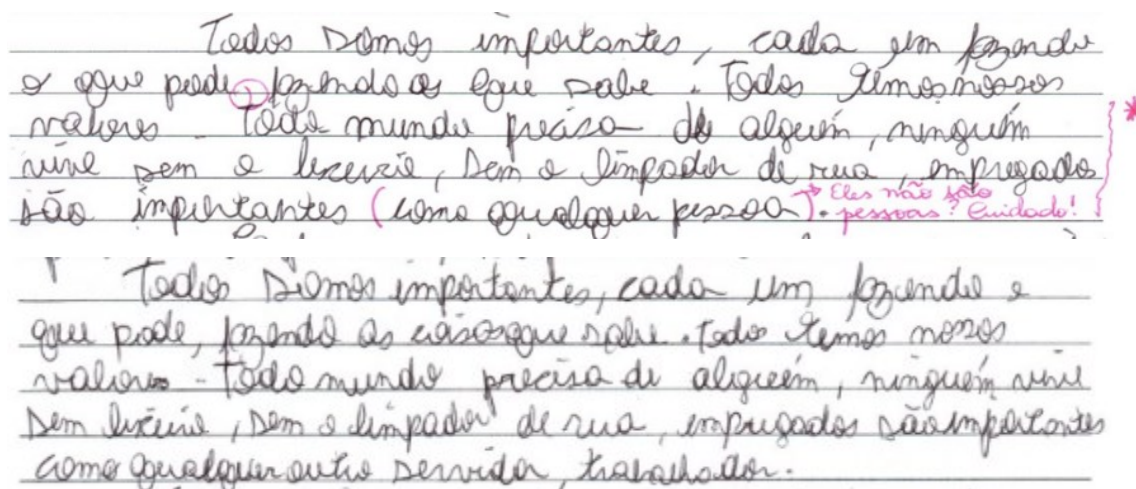 Todos somos importantes, cada um fazendo
o que pode, fazendo as que sabe. Todos temos nossos
valores. Todo mundo precisa de alguém, ninguém
vive sem o lixeiro, sem o limpador de rua, empregados *
são importantes (como qualquer pessoa). → Eles não são
pessoas? Cuidado!
Todos somos importantes, cada um fazendo o
que pode, fazendo as coisas que sabe. Todos temos nossos
valores. Todo mundo precisa de alguém, ninguém vive
sem lixeiro, sem o limpador de rua, empregados são importantes
como qualquer outro servidor, trabalhador.